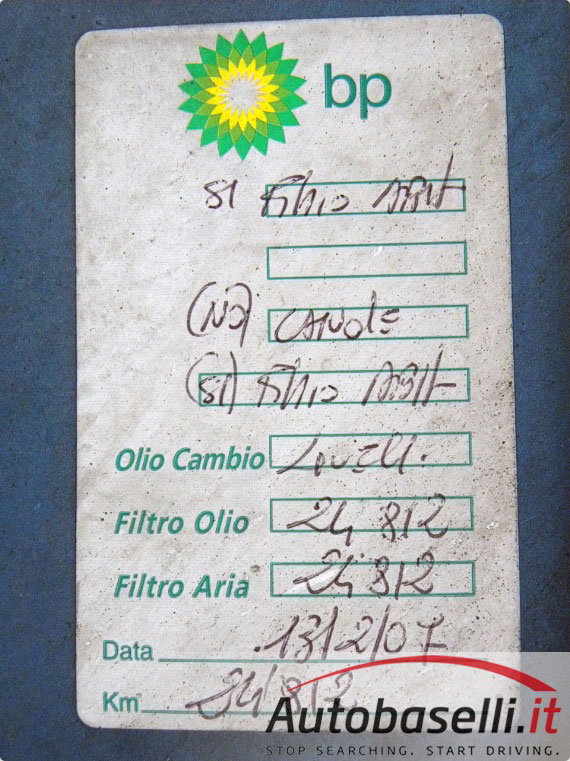 bp
SI Filtro ABIT
(NO) CANDELE
(SI) Filtro ABIT
Olio Cambio Livelli.
Filtro Olio 24 812
Filtro Aria 24 812
Data 13/2/07
Km 24/812
Autobaselli.it
STOP SEARCHING. START DRIVING.